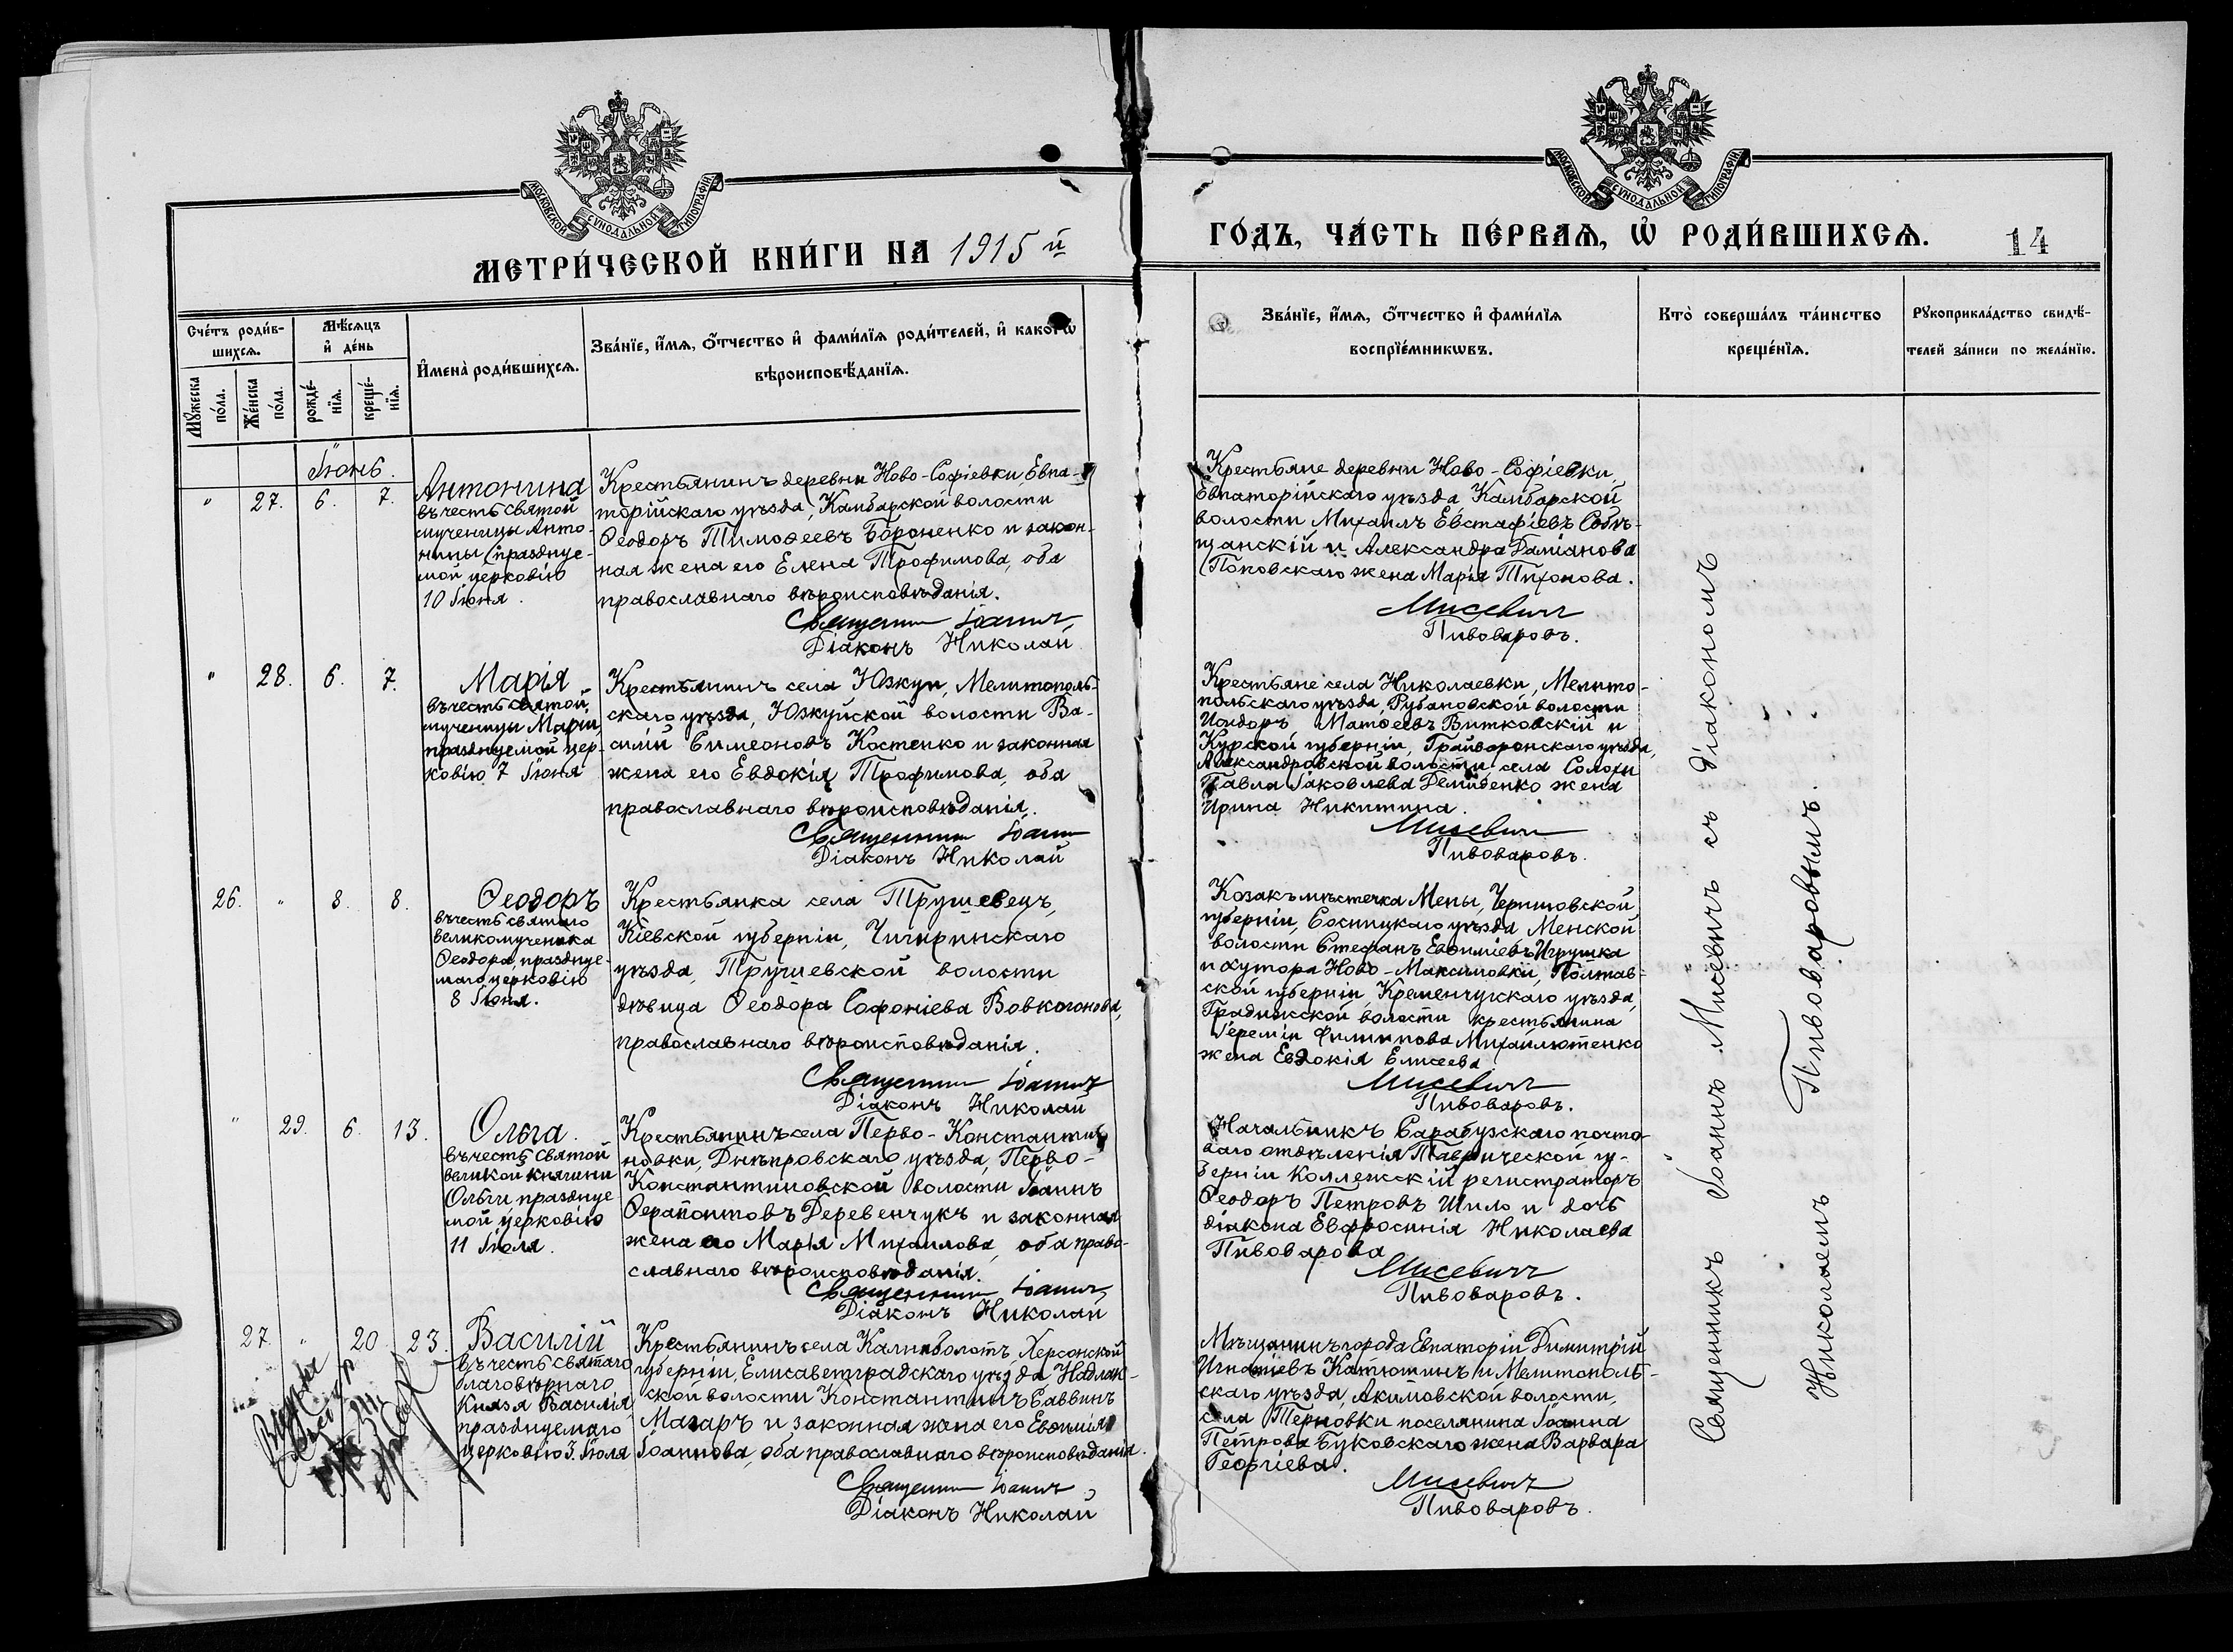 МОСКОВСКОЙ СѴНОДАЛЬНОЙ ТИПОГРАФІИ
МОСКОВСКОЙ СѴНОДАЛЬНОЙ ТИПОГРАФІИ
МЕТРИ́ЧЕСКОЙ КНИ́ГИ НА 1915 й
ГО́ДЪ, ЧА́СТЬ ПЕ́РВАѦ, Ѡ҆ РОДИ́ВШИХСѦ.
14
Сче́тъ роди́в-
шихсѧ.
Мꙋ́жеска по́ла.
Же́нска по́ла.
Мѣ́сѧцъ
и҆ де́нь
рожде́-
нїѧ.
креще́-
нїѧ.
И҆мена̀ роди́вшихсѧ.
Зва́нїе, и҆́мѧ, ѻ҆́тчество и҆ фами́лїѧ роди́телей, и҆ како́гѡ
вѣроисповѣ́данїѧ.
Зва́нїе, и҆́мѧ, ѻ҆́тчество и҆ фами́лїѧ
воспрїе́мникѡвъ.
Кто̀ соверша́лъ та́инство
креще́нїѧ.
Рꙋкоприкла́дство свидѣ́-
телей за́писи по жела́нїю.
Іюнь.
" 27. 6. 7.
Антонина
въ честь святой
мученицы Анто-
нины (празднуе-
мой церковію
10 Іюня.
Крестьянинъ деревни Ново-Софіевки, Евпа-
торійскаго уѣзда, Камбарской волости
Ѳеодоръ Тимоѳеевъ Бороненко и закон-
ная жена его Елена Трофимова, оба
православнаго вѣроисповѣданія.
Священникъ Іоаннъ
Діаконъ Николай
Крестьяне деревни Ново-Софіевки,
Евпаторійскаго уѣзда Камбарской
волости Михаилъ Евстафіевъ Собѣ-
щанскій и Александра Даміанова
Поповскаго жена Марія Тихонова.
Мисевичъ
Пивоваровъ.
" 28. 6. 7.
Марія
въ честь святой
мученицы Маріи,
празднуемой цер-
ковію 7 Іюня
Крестьянинъ села Юзкуи, Мелитополь-
скаго уѣзда, Юзкуйской волости Ва-
силій Симеоновъ Костенко и законная
жена его Евдокія Трофимова, оба
православнаго вѣроисповѣданія.
Священникъ Іоаннъ
Діаконъ Николай
Крестьяне села Николаевки, Мелито-
польскаго уѣзда, Рубановской волости
Исидоръ Матѳеевъ Витковскій и
Курской губерніи, Грайворонскаго уѣзда,
Александровской волости, села Солохи
Павла Іаковлева Демиденко жена
Ирина Никитина.
Мисевичъ
Пивоваровъ.
26. " 8. 8.
Ѳеодоръ
въ честь святаго
великомученика
Ѳеодора, празднуе-
маго церковію
8 Іюня.
Крестьянка села Трушевецъ,
Кіевской губерніи, Чигиринскаго
уѣзда, Трушевской волости
дѣвица Ѳеодора Софоніева Вовкогонова,
православнаго вѣроисповѣданія.
Священникъ Іоаннъ
Діаконъ Николай
Козакъ мѣстечка Мены, Черниговской
губерніи, Сосницкаго уѣзда Менской
волости Стефанъ Евѳиміевъ Игрушка
и хутора Ново-Максимовки, Полтав-
ской губерніи, Кременчугскаго уѣзда,
Градижской волости крестьянина
Іереміи Филиппова Михайлютенко
жена Евдокія Елисеева
Мисевичъ
Пивоваровъ.
" 29. 6. 13.
Ольга.
въ честь святой
великой княгини
Ольги празднуе
мой церковію
11 Іюля.
Крестьянинъ села Перво-Константи-
новки, Днѣпровскаго уѣзда, Перво-
Константиновской волости Іоаннъ
Ѳерапонтовъ Деревенчукъ и законная
жена его Марія Михаилова, оба право-
славнаго вѣроисповѣданія.
Священникъ Іоаннъ
Діаконъ Николай
Начальникъ Сарабузскаго почто-
ваго отдѣленія Таврической гу-
берніи Коллежскій регистраторъ
Ѳеодоръ Петровъ Шило и дочь
діакона Евфросинія Николаева
Пивоварова
Мисевичъ
Пивоваровъ.
27. " 20 23.
Василій
въ честь святаго
благовѣрнаго
Князя Василія
празднуемаго
церковью 3. Іюля
Крестьянинъ села Каниболотъ Херсонской
губерніи, Елисаветградскаго уѣзда, Надлак-
ской волости Константинъ Саввинъ
Мазаръ и законная жена его Евѳимія
Іоаннова, оба православнаго вѣроисповѣданія.
Священникъ Іоаннъ
Діаконъ Николай
Мѣщанинъ города Евпаторіи Димитрій
Игнатіевъ Катюшинъ и Мелитополь-
скаго уѣзда, Акимовской волости,
села Терновки поселянина Іоанна
Петрова Буковскаго жена Варвара
Георгіева.
Мисевичъ
Пивоваровъ.
Священникъ Іоаннъ Мисевичъ съ діакономъ
Николаемъ Пивоваровымъ.